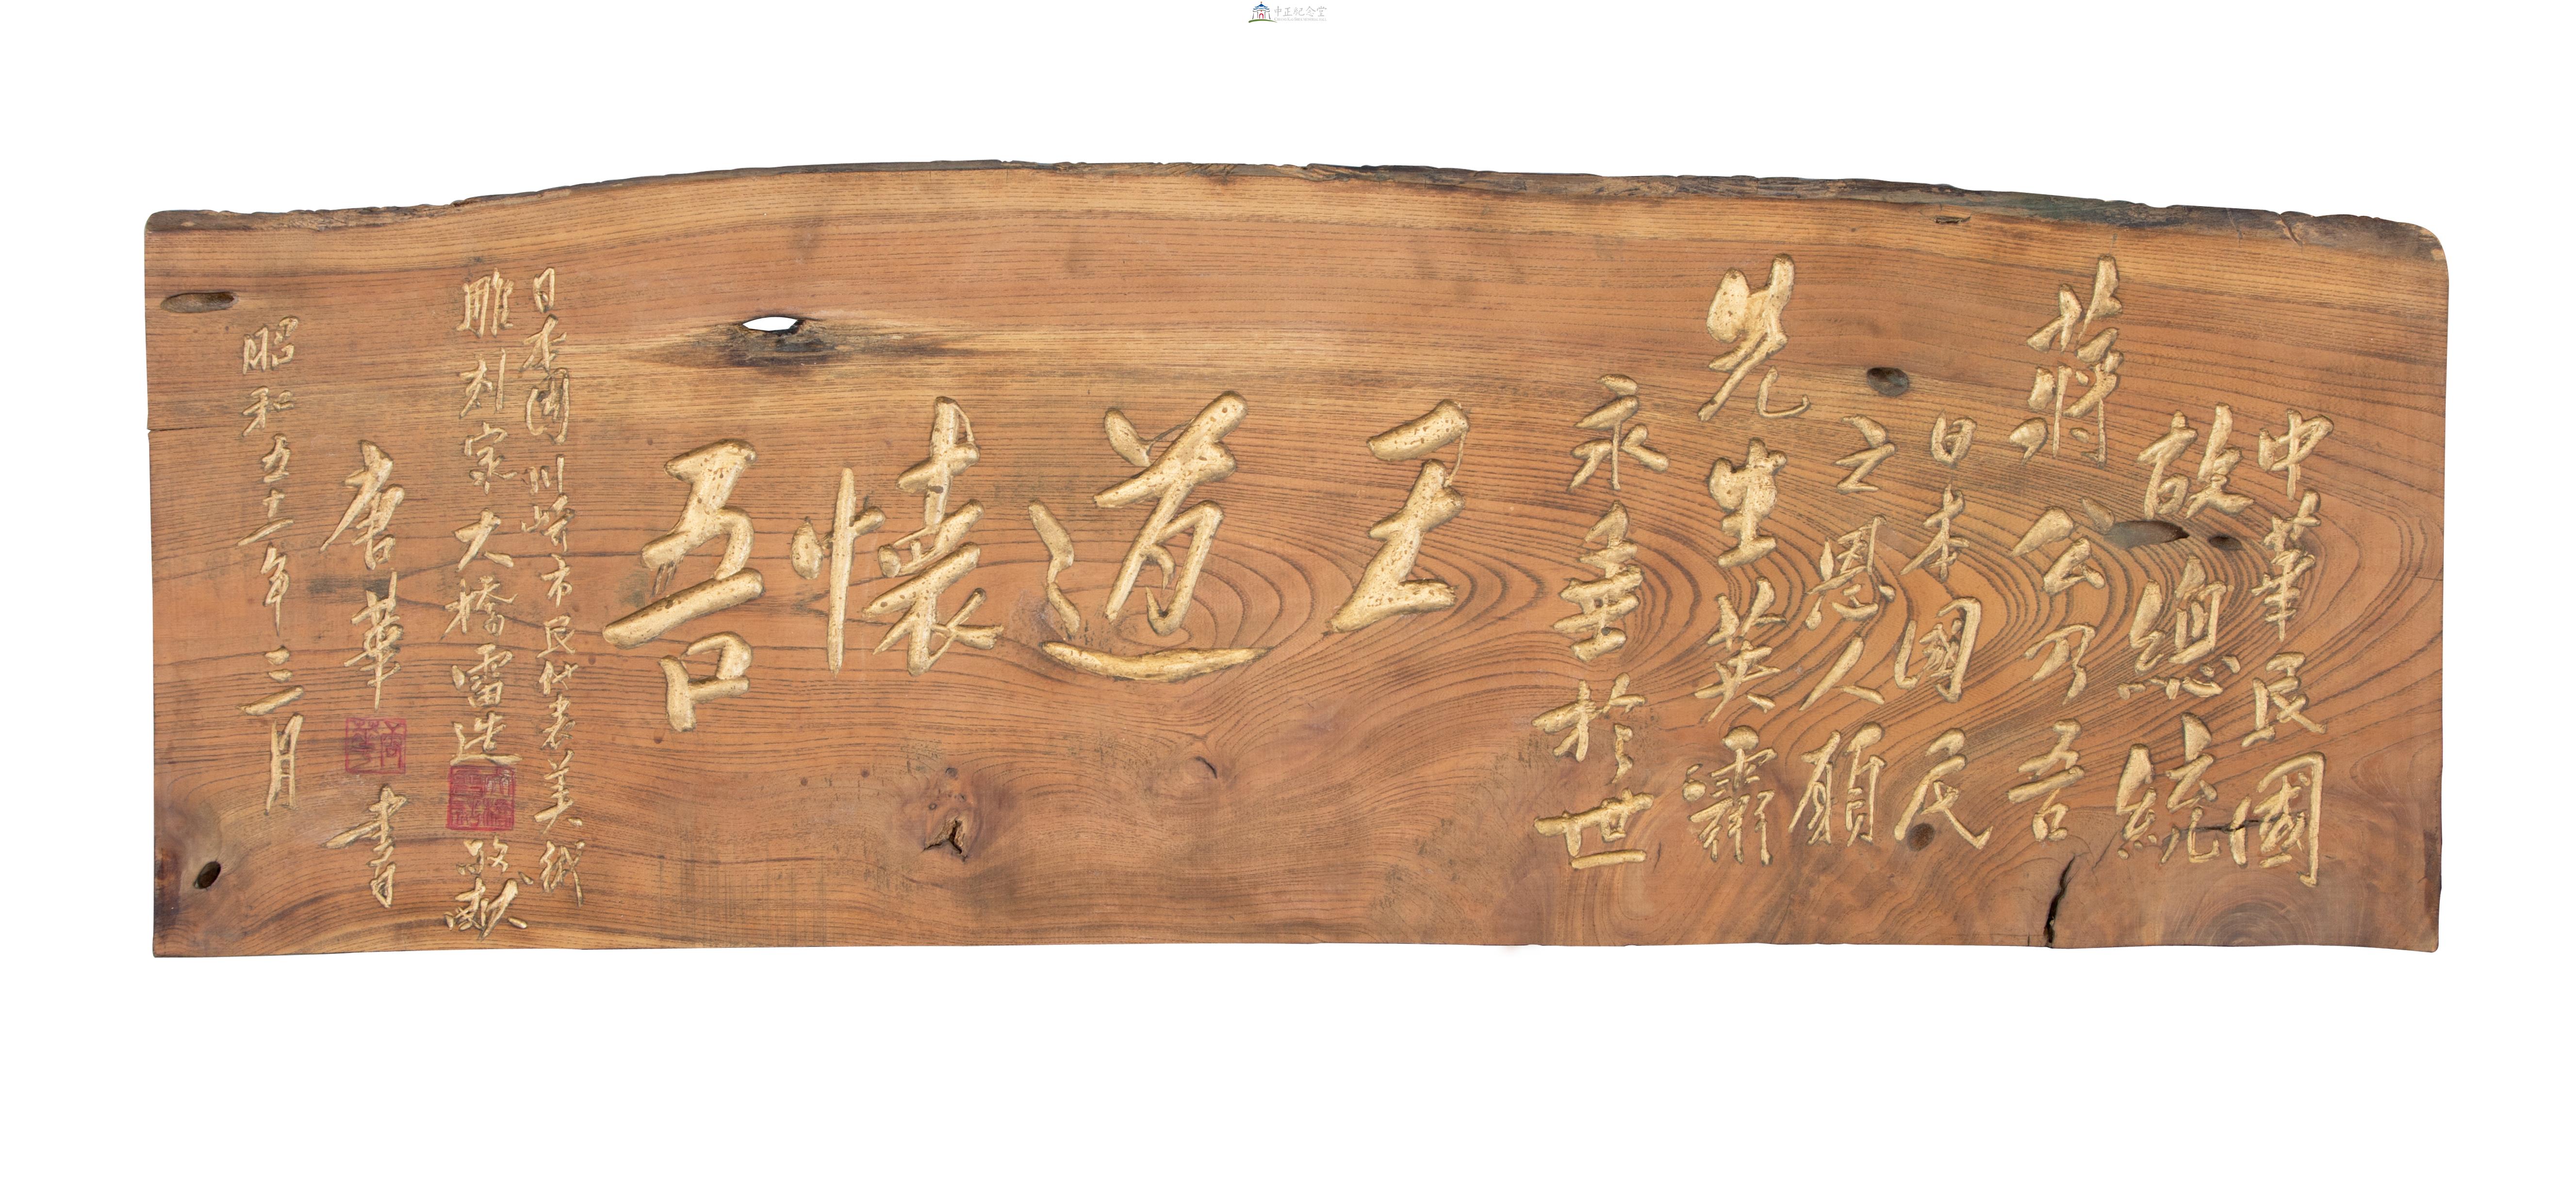 中正紀念堂
中華民國
故總統
蔣公乃吾
日本國民
之恩人願
先生英靈
永垂於世
王道懷吾
日本国川崎市民代表美術
雕刻家大橋雷造敬献
唐華書
昭和五十一年三月